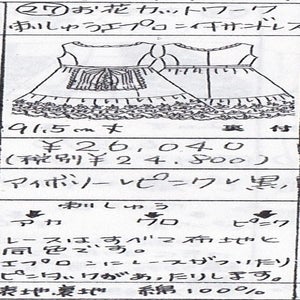 ㉗お花カットワーク
ししゅうエプロン付サンドレス
91.5cm丈 裏付
¥26,040
(税別¥24,800)
アイボリー、ピンク、黒
刺しゅう
アカ クロ ピンク
レースはすべて布地と
同色です。
エプロンにレースがついたり
ピンタックがあったりします。
表地裏地 綿100%